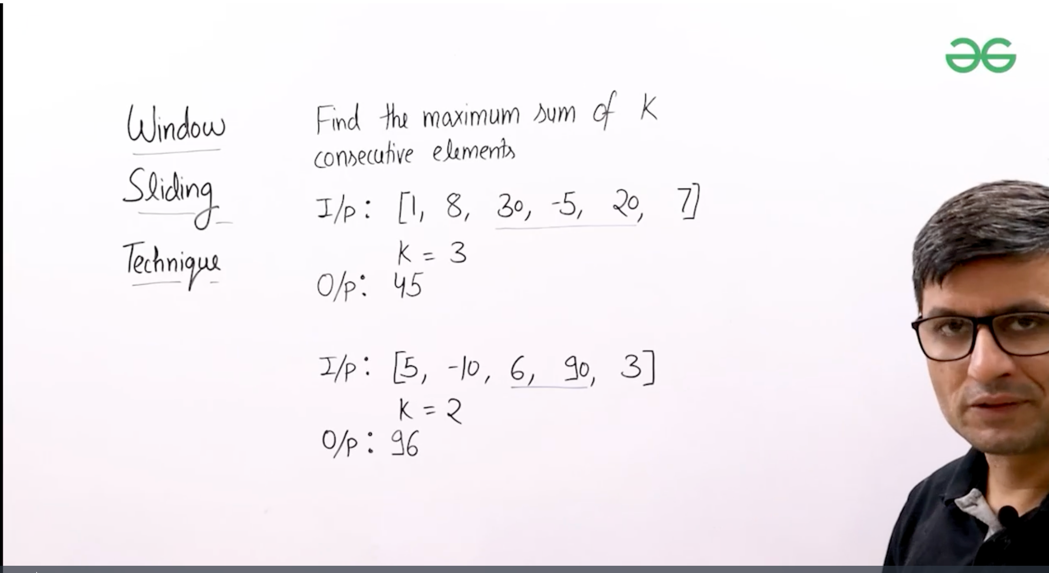 Window
Sliding
Technique
Find the maximum sum of K
consecutive elements
I/p: [1, 8, 30, -5, 20, 7]
K = 3
O/p: 45
I/p: [5, -10, 6, 90, 3]
K = 2
O/p: 96